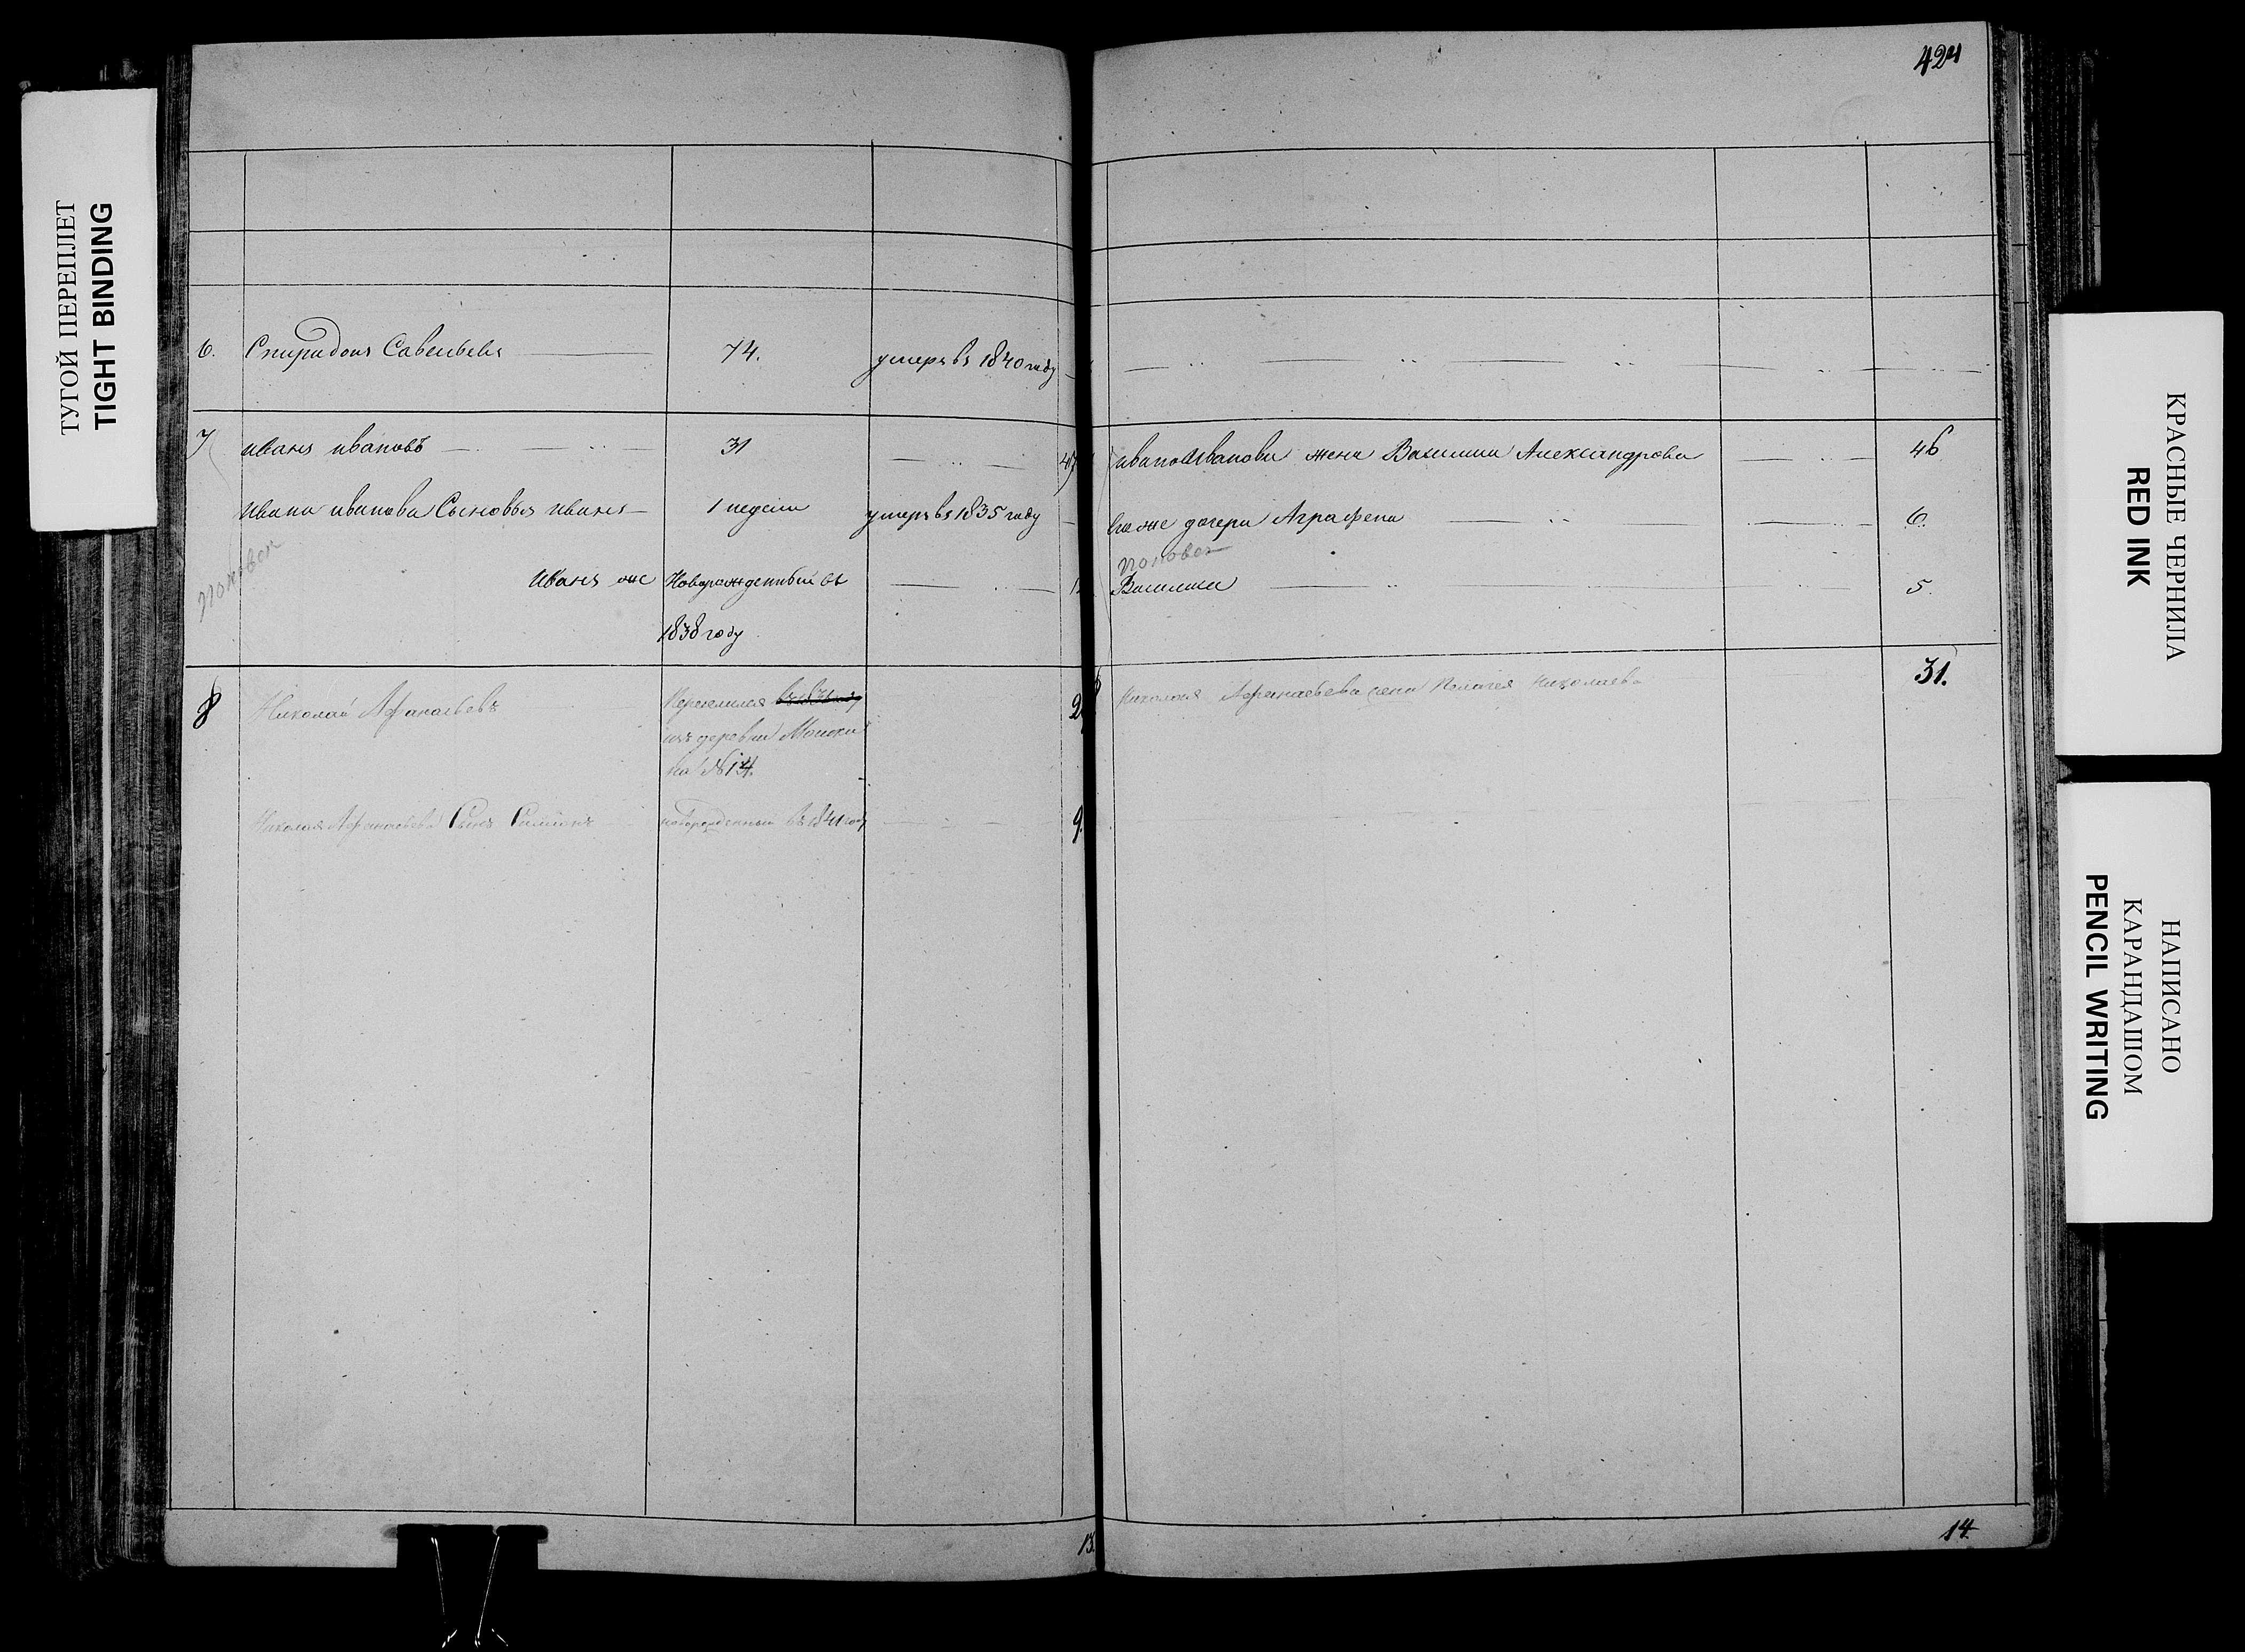 424
6. Спиридонъ Савельевъ 74. умеръ въ 1840 году
7 иванъ ивановъ 31 47 ивана Иванова жена Василиса Александрова 46
ивана иванова Сыновья иванъ 1 недели умеръ въ 1835 году его же дочери Аграфена 6.
поповег
иванъ же Новорожденный въ Василиса 5.
1838 году
8 Николай Афанасьевъ Переселился въ 1831 году Николая Афанасьева жена Пелагея Николаева 31.
изъ деревни
№ 14.
Николая Афанасьева Сынъ Симионъ новорожденный въ 1841 году 9.
13. 14.
ТУГОЙ ПЕРЕПЛЕТ
TIGHT BINDING
КРАСНЫЕ ЧЕРНИЛА
RED INK
НАПИСАНО
КАРАНДАШОМ
PENCIL WRITING